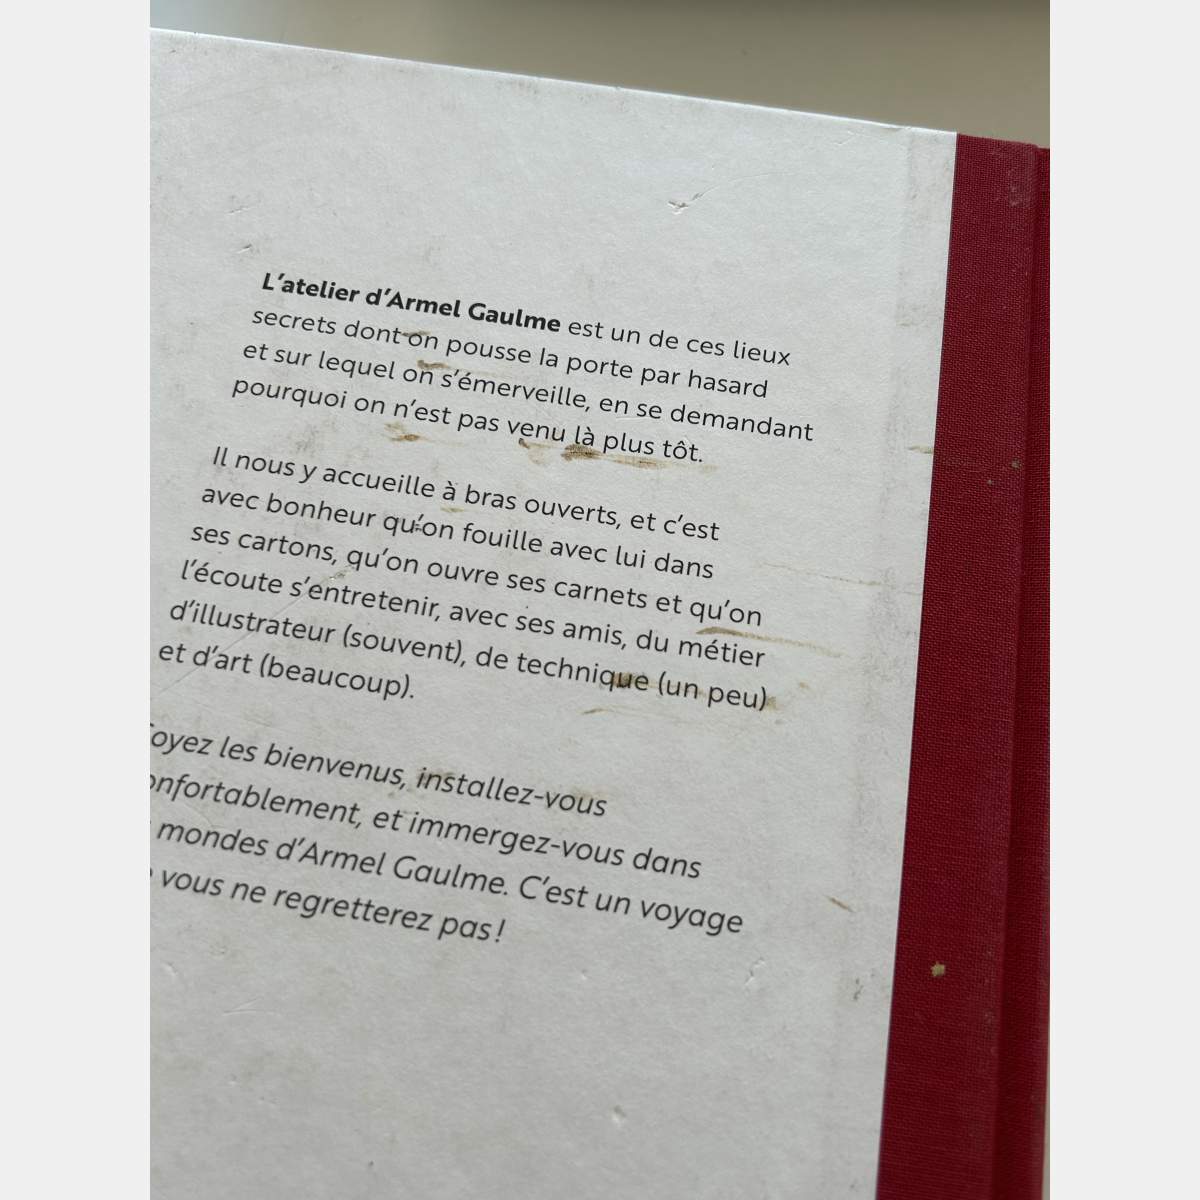 L'atelier d'Armel Gaulme est un de ces lieux
secrets dont on pousse la porte par hasard
et sur lequel on s'émerveille, en se demandant
pourquoi on n'est pas venu là plus tôt.
Il nous y accueille à bras ouverts, et c'est
avec bonheur qu'on fouille avec lui dans
ses cartons, qu'on ouvre ses carnets et qu'on
l'écoute s'entretenir, avec ses amis, du métier
d'illustrateur (souvent), de technique (un peu)
et d'art (beaucoup).
oyez les bienvenus, installez-vous
onfortablement, et immergez-vous dans
mondes d'Armel Gaulme. C'est un voyage
vous ne regretterez pas !